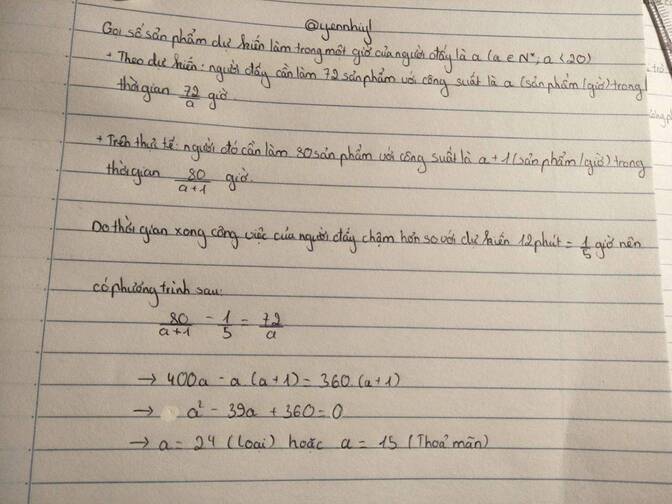 @yennhiyl
Gọi số sản phẩm dự kiến làm trong một giờ của người đấy là a (a ∈ N*, a < 20)
+ Theo dự kiến: người đấy cần làm 72 sản phẩm với công suất là a (sản phẩm/giờ) trong
thời gian 72/a giờ.
+ Trên thực tế: người đó cần làm 80 sản phẩm với công suất là a+1 (sản phẩm/giờ) trong
thời gian 80/a+1 giờ.
Do thời gian xong công việc của người đấy chậm hơn so với dự kiến 12 phút = 1/5 giờ nên
có phương trình sau:
80/a+1 - 1/5 = 72/a
→ 400a - a.(a+1) = 360.(a+1)
→ a² - 39a + 360 = 0
→ a = 24 (loại) hoặc a = 15 (Thoả mãn)